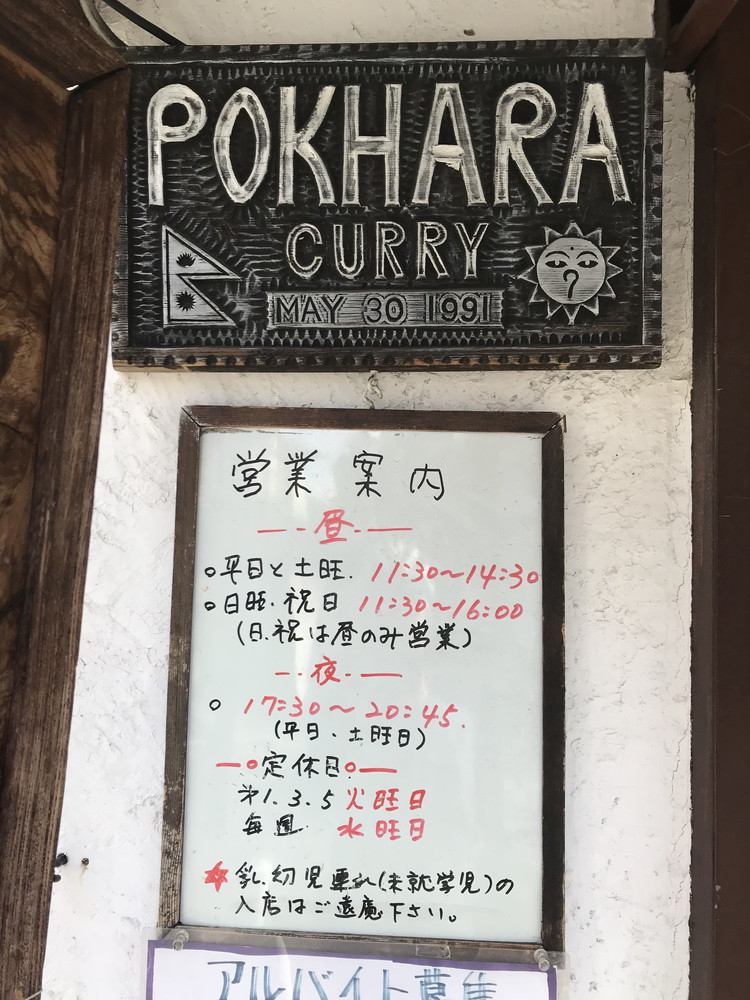 POKHARA
CURRY
MAY 30 1991
営業案内
昼
平日と土旺. 11:30~14:30
日旺.祝日 11:30~16:00
(日.祝は昼のみ営業)
夜
17:30~20:45.
(平日.土旺日)
定休日
㐧1.3.5 火旺日
毎週 水旺日
乳.幼児連れ(未就学児)の
入店はご遠慮下さい。
アルバイト募集